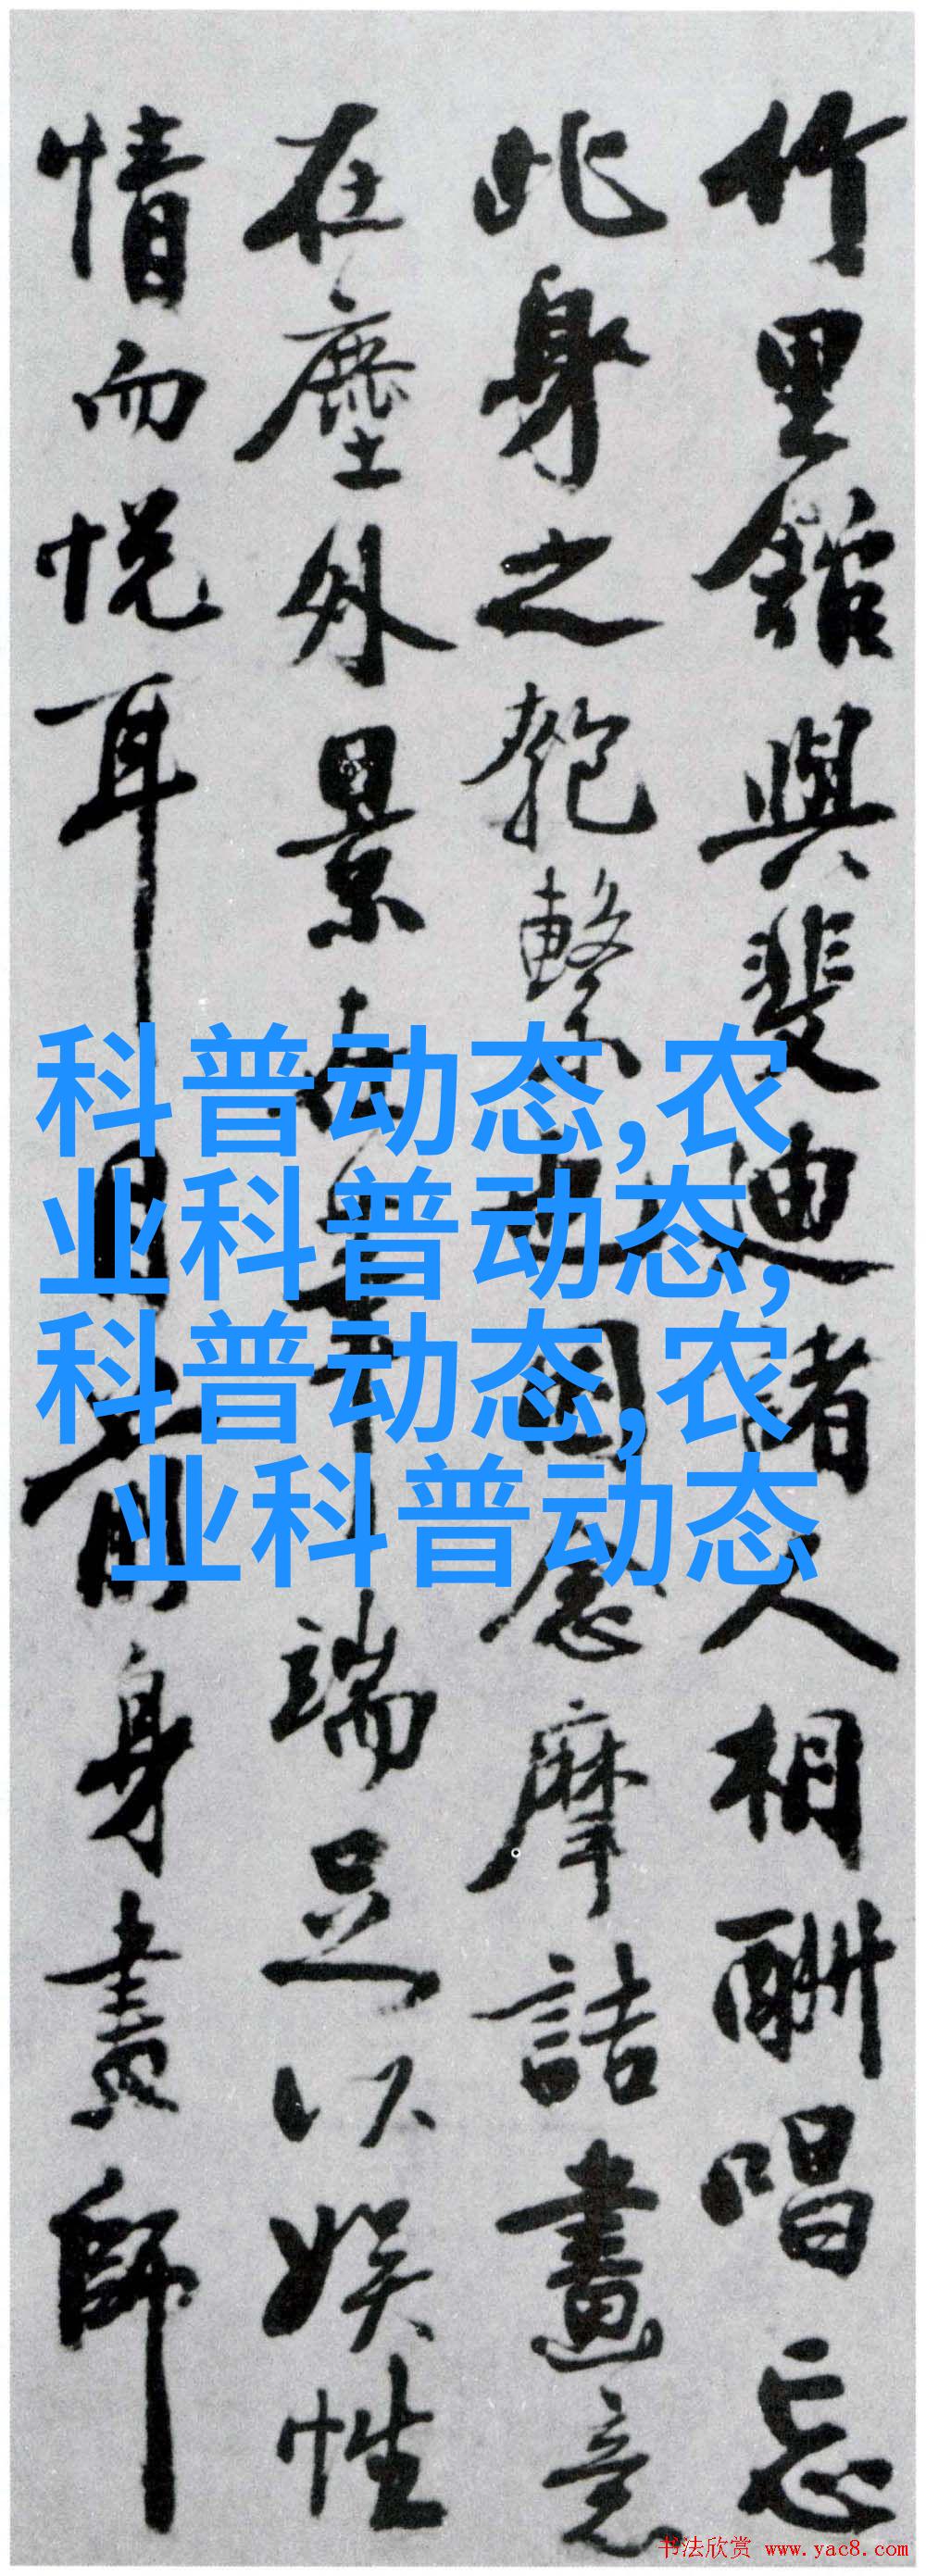 竹里館與斐迪諸人相酬唱忘
此身之匏繫也因念摩詰畫意
在塵外景在端足以娛性
情而悅耳目前身畫師
科普动态,农
业科普动态,
科普动态,农
业科普动态
书法欣赏 www.yac8.com